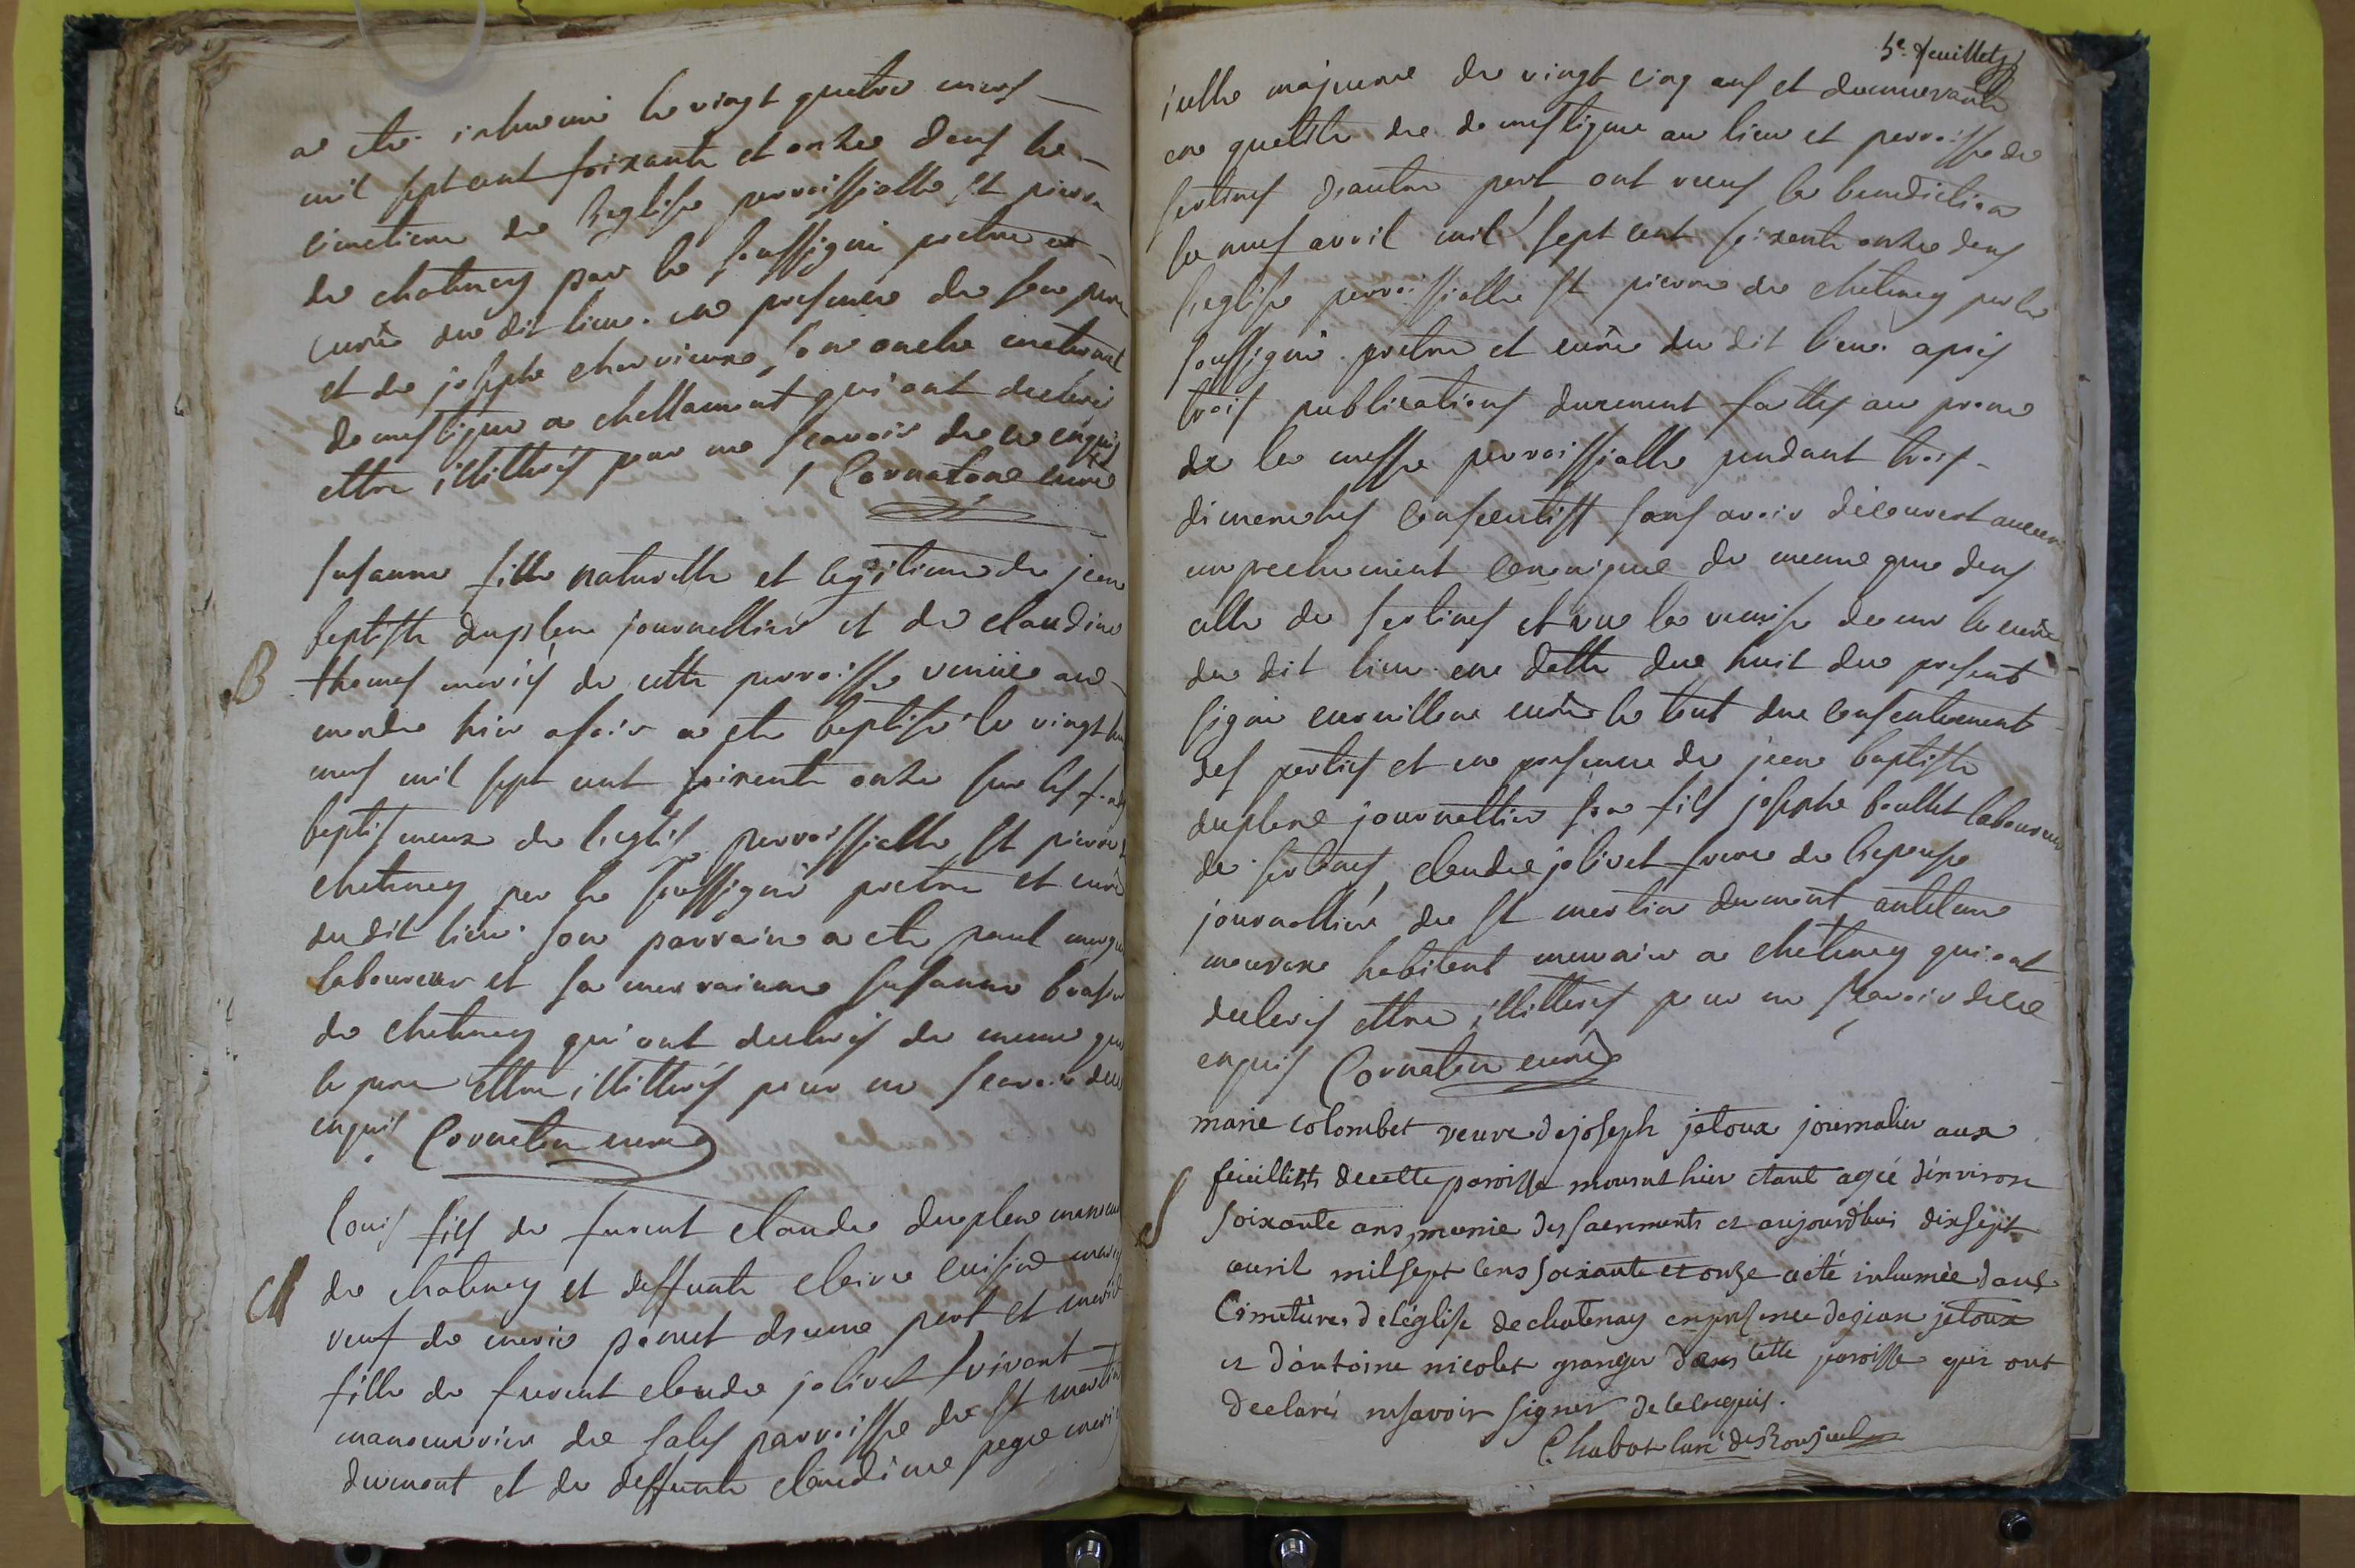 a ete inhumé le vingt quatre mars
mil sept cent soixante et onze dans le
cimetiere de l'eglise parroissialle St pierre
de chatenay par le soussigné pretre et
curé du dit lieu. en presence de son pere
et de josephe charvieux son oncle maternel
domestique a chellamont qui ont declaré
ettre illitterés pour ne scavoir de ce enquis
Cornaton curé
Susanne fille naturelle et legitime de jean
baptiste duplen journellier et de claudine
thomas mariés de cette parroisse venüe au
B
monde hier a soir a ete baptisé le vingt
mars mil sept cent soixente onze sur les fonds
baptismeaux de l'eglise parroissialle St pierre
chatenay par le soussigné pretre et curé
du dit lieu. son parrain a ete paul
laboureur et sa marrainne susanne
de chatenay qui ont declarés de meme que
le pere ettre illitterés pour ne scavoir de ce
enquis Cornaton curé
Louis fils de furent claude duplen
de chatenay et deffunte claire mariés
M
veuf de marie d'eune part et marie
fille de furent claude jolivet vivant
manoeuvrier de sales parroisse de St martin
dumont et de deffunte claudine mariés
5e. feuillets
icelle majeure de vingt cinq ans et demeurante
en qualité de domestique au lieu et parroisse de
sertines d'autre part ont reçus la benediction
le neuf avril mil sept cent soixente onze dans
l'eglise parroissialle St pierre de chatenay par le
soussigné pretre et curé du dit lieu. apres
trois publications duement faittes au prone
de la messe parroissialle pendant trois
dimenches consecutifs sans avoir découvert aucun
empechement canonique de meme que dans
celle de sertines et vue la remise de mr le curé
du dit lieu en datte du huit du present
signé curé le tout du consentement
des parties et en presence de jean baptiste
duplene journellier son fils josephe boullet laboureur
de sertines, claude jolivet frere de l'epouse
journallier de St martin dumont antelme
habitant a chatenay qui ont
declarés ettre illitterés pour ne sçavoir de ce
enquis Cornaton curé
marie colombet veuve de joseph jatoux journalier aux
feüillets de cette paroisse mourut hier etant agée d'environ
S
soixante ans, munie des sacrements et aujourd'hui dix sept
avril mil sept cens soixante et onze a eté inhumée dans
Cimetiere de l'église de chatenay en presence de jean jatoux
et d'antoine nicolet granger dans cette paroisse qui ont
declarés ne savoir signer de ce enquis.
Chabot curé de Ronzuel